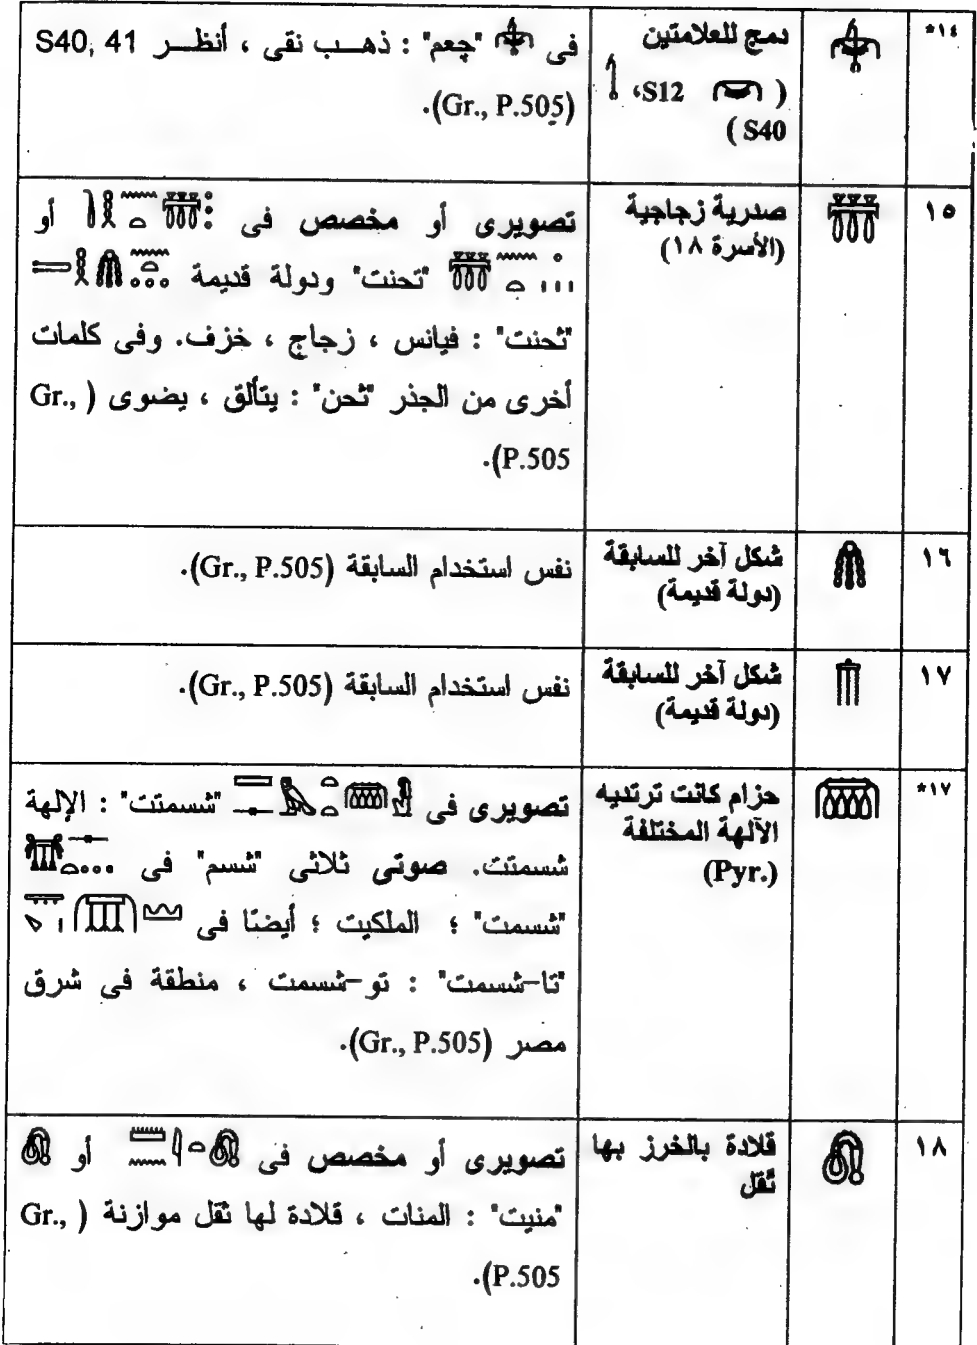 *١٤
دمج للعلامتين
( 𓋞 S12، 𓌀
S40 )
فى 𓋡 "چعم" : ذهب نقى ، أنظر S40, 41
(Gr., P.505).
١٥
صدرية زجاجية
(الأسرة ١٨)
تصويرى أو مخصص فى أو
"تحنت" ودولة قديمة
"ثحنت" : فيانس ، زجاج ، خزف. وفى كلمات
أخرى من الجذر "ثحن" : يتألق ، يضوى ( Gr.,
P.505).
١٦
شكل آخر للسابقة
(دولة قديمة)
نفس استخدام السابقة (Gr., P.505).
١٧
شكل آخر للسابقة
(دولة قديمة)
نفس استخدام السابقة (Gr., P.505).
*١٧
حزام كانت ترتديه
الآلهة المختلفة
(Pyr.)
تصويرى فى "شسمتت" : الإلهة
شسمتت. صوتى ثلاثى "شسم" فى
"شسمت" ؛ الملكيت ؛ أيضًا فى
"تا-شسمت" : تو-شسمت ، منطقة فى شرق
مصر (Gr., P.505).
١٨
قلادة بالخرز بها
ثقل
تصويرى أو مخصص فى أو
"منيت" : المنات ، قلادة لها ثقل موازنة ( Gr.,
P.505).